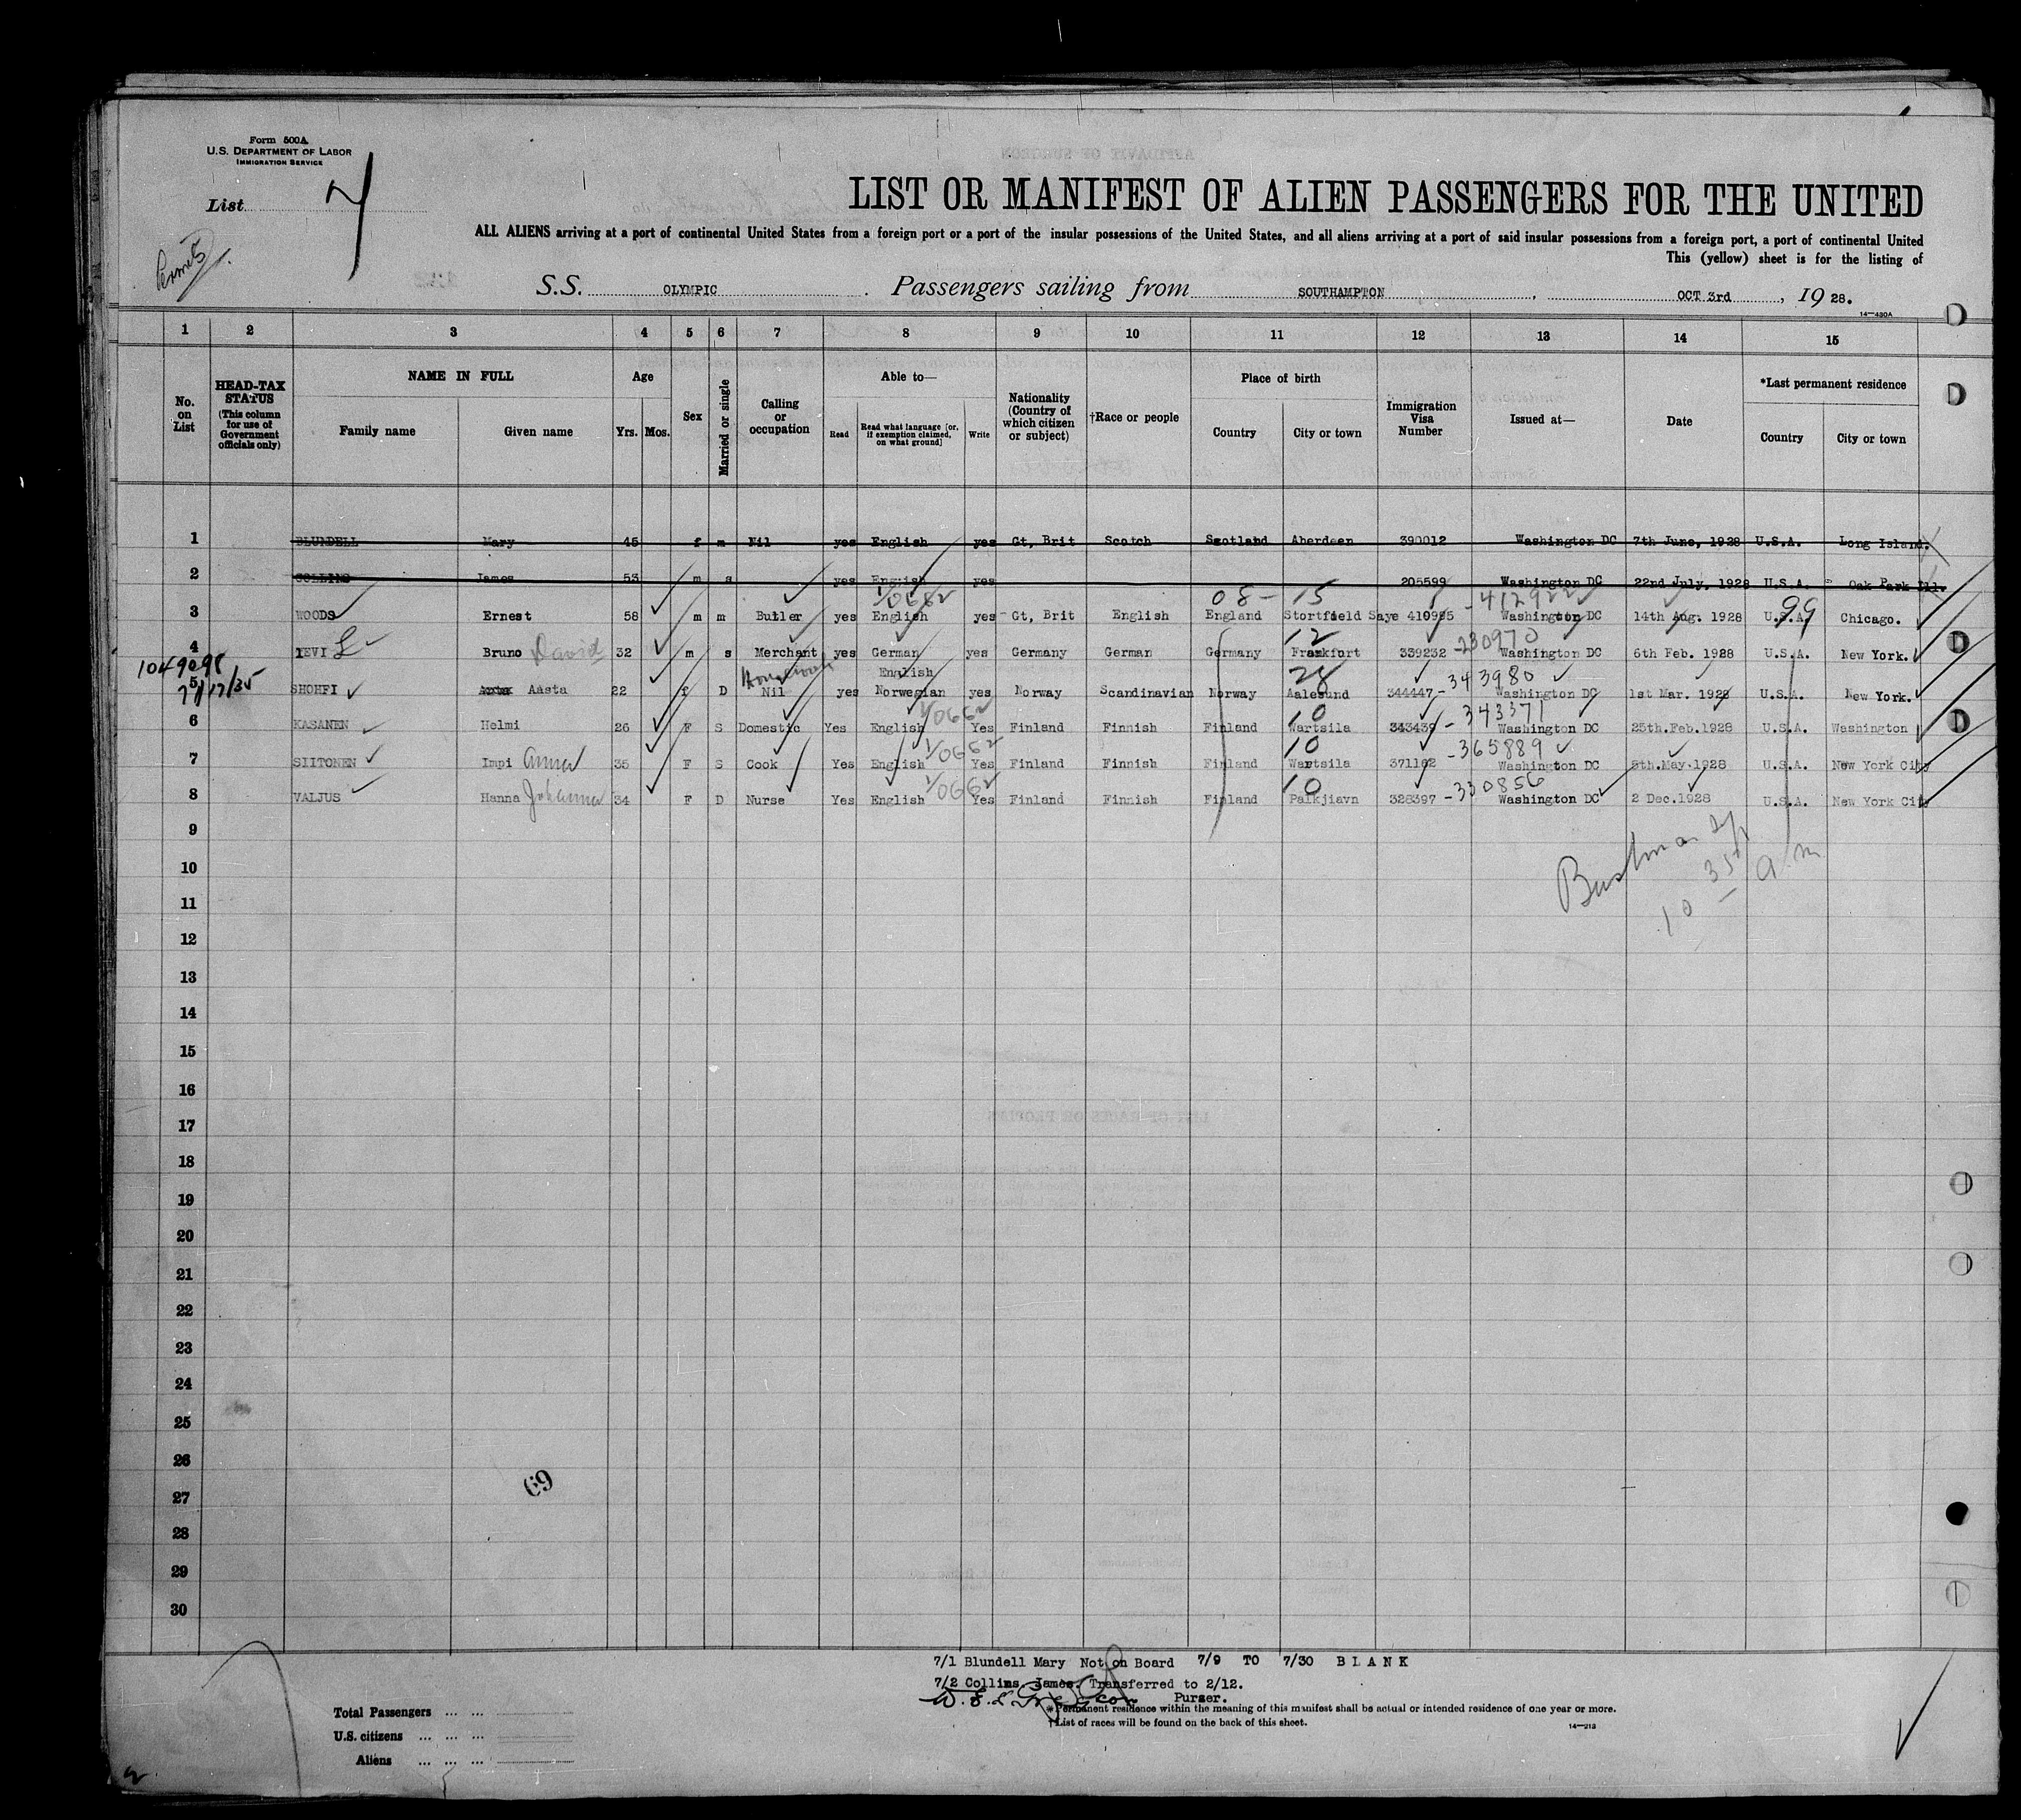 Form 500A
U.S. DEPARTMENT OF LABOR
IMMIGRATION SERVICE
List 7
Permits
LIST OR MANIFEST OF ALIEN PASSENGERS FOR THE UNITED
ALL ALIENS arriving at a port of continental United States from a foreign port or a port of the insular possessions of the United States, and all aliens arriving at a port of said insular possessions from a foreign port, a port of continental United
This (yellow) sheet is for the listing of
S.S. OLYMPIC. Passengers sailing from SOUTHAMPTON, OCT 3rd, 1928.
14—430A
1 2 3 4 5 6 7 8 9 10 11 12 13 14 15
No. on List
HEAD-TAX STATUS (This column for use of Government officials only)
NAME IN FULL Family name Given name
Age Yrs. Mos.
Sex
Married or single
Calling or occupation
Able to— Read Read what language [or, if exemption claimed, on what ground] Write
Nationality (Country of which citizen or subject)
†Race or people
Place of birth Country City or town
Immigration Visa Number
Issued at—
Date
*Last permanent residence Country City or town
1 BLUNDELL Mary 45 f m Nil yes English yes Gt, Brit Scotch Scotland Aberdeen 390012 Washington DC 7th June, 1928 U.S.A. Long Island.
2 COLLINS James 53 m s yes English yes 205599 Washington DC 22nd July. 1928 U.S.A. Oak Park Ill.
1/0662 08- 15 -412922 99
3 WOODS Ernest 58 m m Butler yes English yes Gt, Brit English England Stortfield Saye 410995 Washington DC 14th Aug. 1928 U.S.A. Chicago.
12 -230970
4 LEVI Bruno David 32 m s Merchant yes German yes Germany German Germany Frankfort 339232 Washington DC 6th Feb. 1928 U.S.A. New York.
1049098
7/17/35
English 28 -343980
5 SHOHFI Aasta 22 f D Nil yes Norwegian yes Norway Scandinavian Norway Aalesund 344447 Washington DC 1st Mar. 1928 U.S.A. New York.
1/0662 10 -343371
6 KASANEN Helmi 26 F S Domestic Yes English Yes Finland Finnish Finland Wartsila 343439 Washington DC 25th.Feb.1928 U.S.A. Washington
1/0662 10 -365889
7 SIITONEN Impi Anna 35 F S Cook Yes English Yes Finland Finnish Finland Wartsila 371102 Washington DC 8th.May.1928 U.S.A. New York City
1/0662 10 -330856
8 VALJUS Hanna Johanna 34 F D Nurse Yes English Yes Finland Finnish Finland Palkjiavn 328397 Washington DC 2 Dec.1928 U.S.A. New York City
9
10
10 35 a.m
11
12
13
14
15
16
17
18
19
20
21
22
23
24
25
26
69
27
28
29
30
7/1 Blundell Mary Not on Board 7/9 TO 7/30 BLANK
7/2 Collins, James. Transferred to 2/12.
Purser.
*Permanent residence within the meaning of this manifest shall be actual or intended residence of one year or more.
†List of races will be found on the back of this sheet.
14—213
Total Passengers
U.S. citizens
Aliens